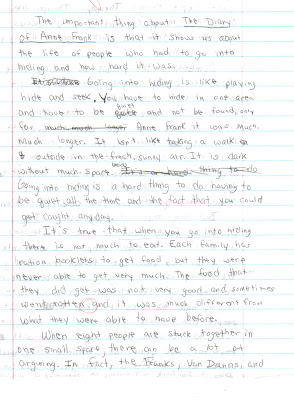 The important thing about The Diary
of Anne Frank is that it shows us about
the life of people who had to go into
hiding and how hard it was.
Going into hiding is like playing
hide and seek. You have to hide in one area
and have to be quiet and not be found, only
for Anne Frank it was much,
much longer. It isn't like taking a walk
outside in the fresh, sunny air. It is dark
without much space.
Going into hiding is a hard thing to do having to
be quiet all the time and the fact that you could
get caught any day.
It's true that when you go into hiding
there is not much to eat. Each family has
ration booklets to get food, but they were
never able to get very much. The food that
they did get was not very good and sometimes
went rotten and it was much different from
what they were able to have before.
When eight people are stuck together in
one small space, there can be a lot of
arguing. In fact, the Franks, Van Danns, and